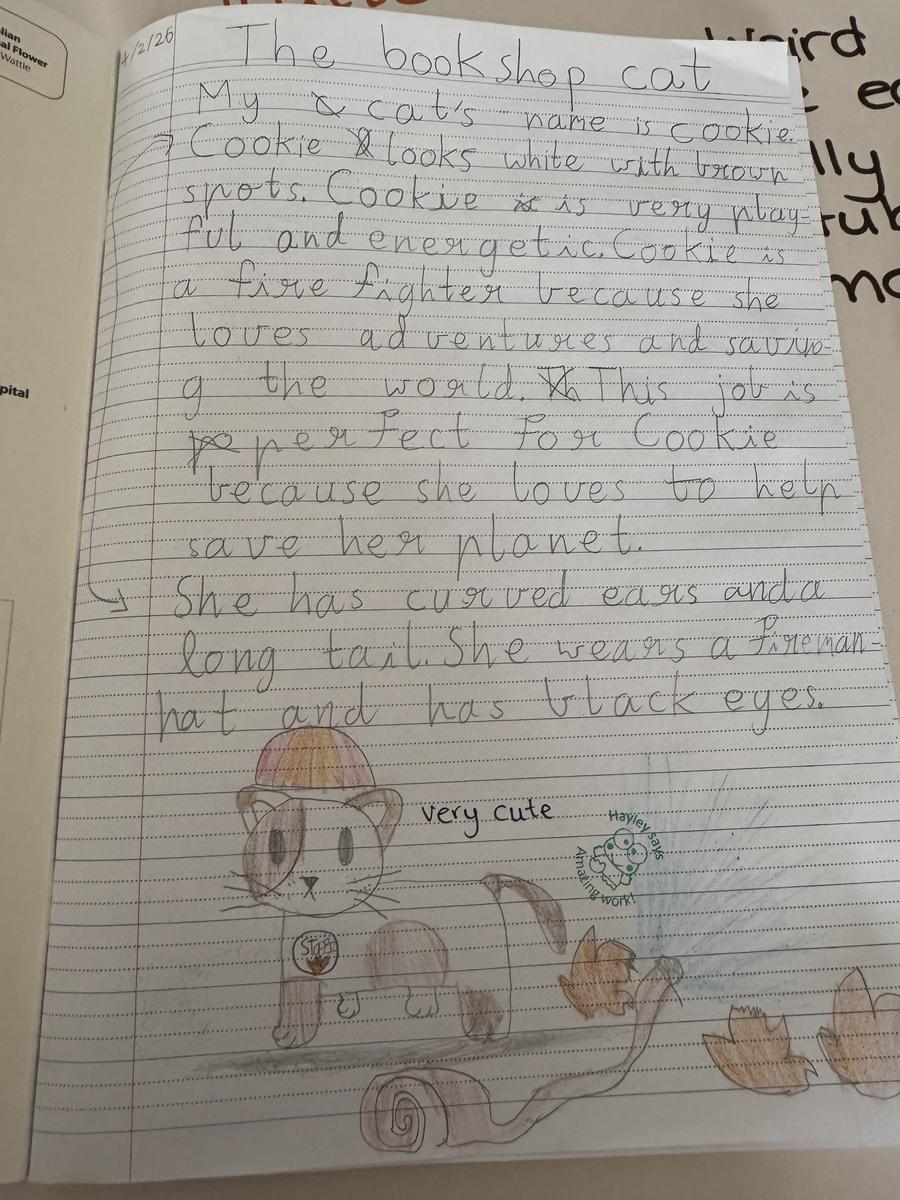 lian
al Flower
Wattle
pital
4/2/26
The bookshop cat
My cat's name is cookie.
Cookie looks white with brown
spots. Cookie is very play-
ful and energetic. Cookie is
a fire fighter because she
loves adventures and savin-
g the world. This job is
perfect for Cookie
because she loves to help
save her planet.
She has curved ears and a
long tail. She wears a fireman-
hat and has black eyes.
very cute
Hayley says
Amazing work!
ird
lly